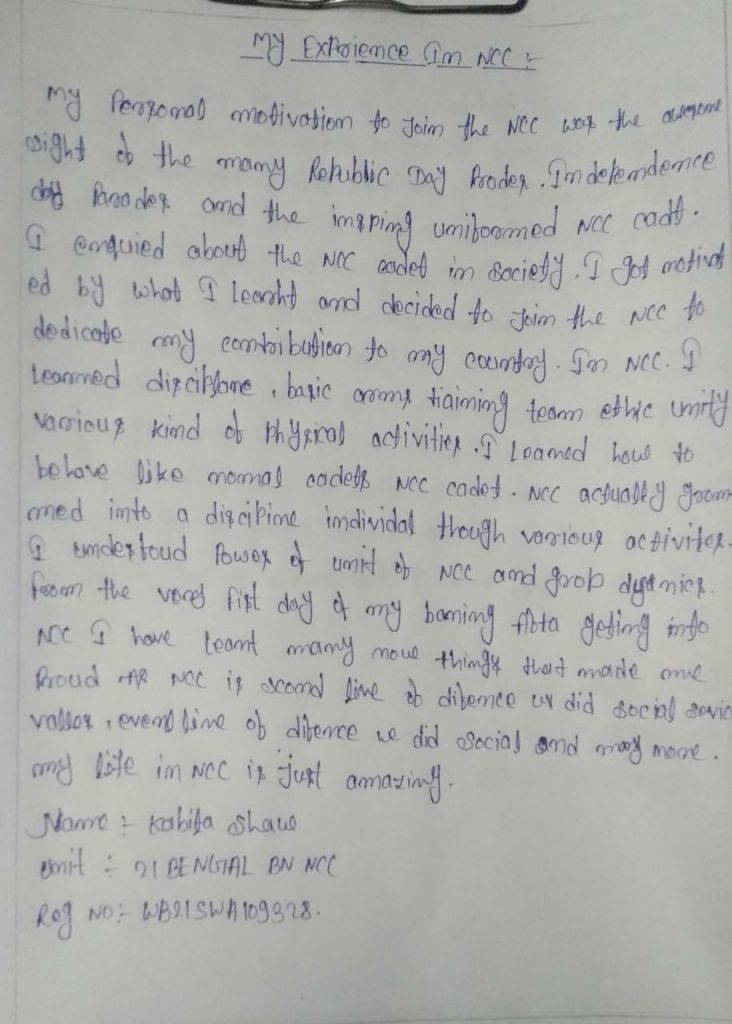 My Expoience In NCC :-
My Personal motivation to Join the NCC was the awesome
sight of the many Republic Day Prodes. Independence
day Parades and the insping uniformed NCC cadt.
I enquied about the NCC cadet in society. I got motivat
ed by what I learnt and decided to Join the NCC to
dedicate my contribution to my country. In NCC. I
Learned discipline, basic arms tiaining team ethic unity
Various kind of Physical activities. I Learned how to
behave like normal cadets NCC cadet. NCC actually groom
med into a discipine individal though various activites.
I understoud Power of unit of NCC and grop dyanics.
From the very fist day of my geting into
NCC I have learnt many nowe things that made me
Proud NCC is scond line of difence we did social sevic
line of difence we did social and may more.
my life in NCC is just amazing.
Name :- Kabita Shaw
unit :- 21 BENGAL BN NCC
Reg NO:- WB21SWA109328.